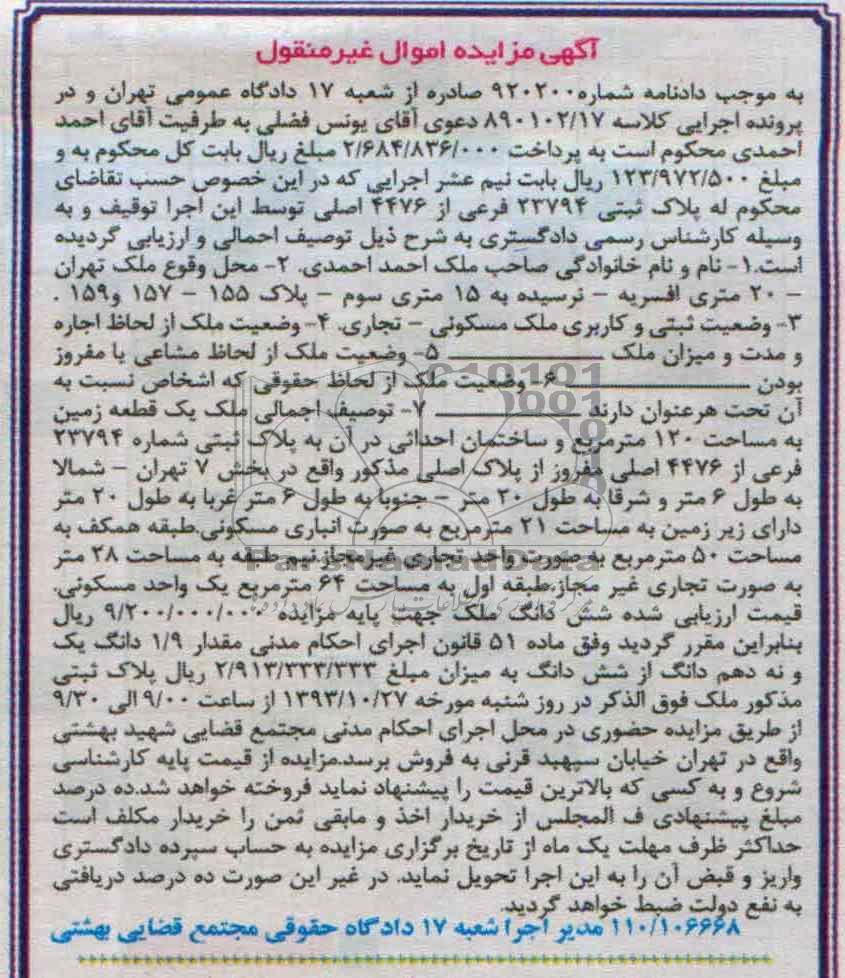 آگهی مزایده اموال غیرمنقول
به موجب دادنامه شماره۹۲۰۲۰۰ صادره از شعبه ۱۷ دادگاه عمومی تهران و در
پرونده اجرایی کلاسه ۸۹۰۱۰۲/۱۷ دعوی آقای یونس فضلی به طرفیت آقای احمد
احمدی محکوم است به پرداخت ۲/۶۸۴/۸۳۶/۰۰۰ مبلغ ریال بابت کل محکوم به و
مبلغ ۱۲۳/۹۷۲/۵۰۰ ریال بابت نیم عشر اجرایی که در این خصوص حسب تقاضای
محکوم له پلاک ثبتی ۲۳۷۹۴ فرعی از ۴۴۷۶ اصلی توسط این اجرا توقیف و به
وسیله کارشناس رسمی دادگستری به شرح ذیل توصیف اجمالی و ارزیابی گردیده
است.۱- نام و نام خانوادگی صاحب ملک احمد احمدی. ۲- محل وقوع ملک تهران
– ۲۰ متری افسریه – نرسیده به ۱۵ متری سوم – پلاک ۱۵۵ – ۱۵۷ و۱۵۹ .
۳- وضعیت ثبتی و کاربری ملک مسکونی – تجاری. ۴- وضعیت ملک از لحاظ اجاره
و مدت و میزان ملک ــــــــــــــ ۵- وضعیت ملک از لحاظ مشاعی یا مفروز
بودن ــــــــــــــ ۶- وضعیت ملک از لحاظ حقوقی که اشخاص نسبت به
آن تحت هرعنوان دارند ــــــــــــــ ۷- توصیف اجمالی ملک یک قطعه زمین
به مساحت ۱۲۰ مترمربع و ساختمان احداثی در آن به پلاک ثبتی شماره ۲۳۷۹۴
فرعی از ۴۴۷۶ اصلی مفروز از پلاک اصلی مذکور واقع در بخش ۷ تهران – شمالا
به طول ۶ متر و شرقا به طول ۲۰ متر – جنوبا به طول ۶ متر غربا به طول ۲۰ متر
دارای زیر زمین به مساحت ۲۱ مترمربع به صورت انباری مسکونی.طبقه همکف به
مساحت ۵۰ مترمربع به صورت واحد تجاری غیرمجاز.نیم طبقه به مساحت ۲۸ متر
ParsNamadData
به صورت تجاری غیر مجاز.طبقه اول به مساحت ۶۴ مترمربع یک واحد مسکونی.
قیمت ارزیابی شده شش دانگ ملک جهت پایه مزایده ۹/۲۰۰/۰۰۰/۰۰۰ ریال
بنابراین مقرر گردید وفق ماده ۵۱ قانون اجرای احکام مدنی مقدار ۱/۹ دانگ یک
و نه دهم دانگ از شش دانگ به میزان مبلغ ۲/۹۱۳/۳۳۳/۳۳۳ ریال پلاک ثبتی
مذکور ملک فوق الذکر در روز شنبه مورخه ۱۳۹۳/۱۰/۲۷ از ساعت ۹/۰۰ الی ۹/۳۰
از طریق مزایده حضوری در محل اجرای احکام مدنی مجتمع قضایی شهید بهشتی
واقع در تهران خیابان سپهبد قرنی به فروش برسد.مزایده از قیمت پایه کارشناسی
شروع و به کسی که بالاترین قیمت را پیشنهاد نماید فروخته خواهد شد.ده درصد
مبلغ پیشنهادی ف المجلس از خریدار اخذ و مابقی ثمن را خریدار مکلف است
حداکثر ظرف مهلت یک ماه از تاریخ برگزاری مزایده به حساب سپرده دادگستری
واریز و قبض آن را به این اجرا تحویل نماید. در غیر این صورت ده درصد دریافتی
به نفع دولت ضبط خواهد گردید.
۱۱۰/۱۰۶۶۶۸ مدیر اجرا شعبه ۱۷ دادگاه حقوقی مجتمع قضایی بهشتی